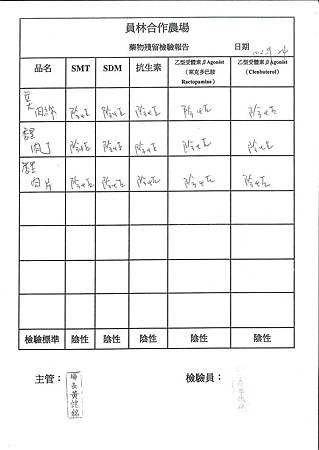 員林合作農場
藥物殘留檢驗報告 日期 102.9.24
品名 SMT SDM 抗生素 乙型受體素βAgonist（萊克多巴胺 Ractopamine） 乙型受體素βAgonist (Clenbuterol)
肉絲 陰性 陰性 陰性 陰性 陰性
肉丁 陰性 陰性 陰性 陰性 陰性
肉片 陰性 陰性 陰性 陰性 陰性
檢驗標準 陰性 陰性 陰性 陰性 陰性
主管： 場長黃健銘 檢驗員：